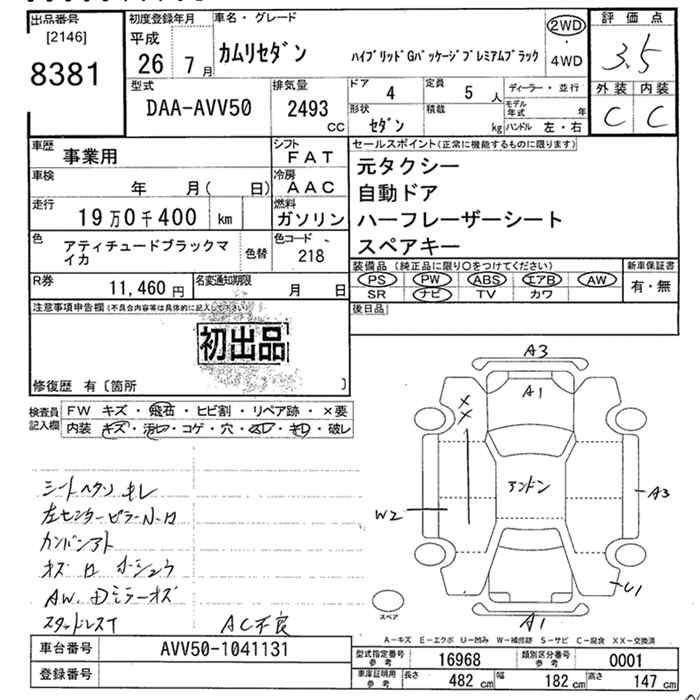 出品番号
[2146]
8381
初度登録年月
平成
26年 7月
車名・グレード
カムリセダン
ハイブリッドGパッケージプレミアムブラック
2WD
・
4WD
評価点
3.5
外装 内装
C C
型式
DAA-AVV50
排気量
2493
CC
ドア 4
定員 5 人
ディーラー・並行
形状 セダン
積載 kg
モデル年式 年
ハンドル 左・右
車歴 事業用
シフト FAT
車検 年 月( 日)
冷房 AAC
走行 19万0千400 km
燃料 ガソリン
色 アティチュードブラックマイカ
色替
色コード 218
R券 11,460 円
名変通知期限 月 日
セールスポイント(正常に機能するものに限ります)
元タクシー
自動ドア
ハーフレーザーシート
スペアキー
装備品(純正品に限り○をつけてください)
PS PW ABS エアB AW
SR ナビ TV カワ
新車保証書
有・無
後日品
注意事項申告欄(不具合内容等は具体的に記入して下さい)
初出品
修復歴 有〔箇所 〕
検査員記入欄
FW キズ・飛石・ヒビ割・リペア跡・×要
内装 キズ・汚レ・コゲ・穴・スレ・キレ・破レ
シートヘタリ キレ
カンバンアト
AW. Dミラーキズ
スタッドレスT
AC不良
A3
A1
XX
アンドン
W2
A3
U1
A1
スペア
A-キズ E-エクボ U-凹み W-補修跡 S-サビ C-腐食 XX-交換済
車台番号 AVV50-1041131
登録番号
型式指定番号 参考 16968
類別区分番号 参考 0001
車庫証明用 参考 長さ 482 cm 幅 182 cm 高さ 147 cm